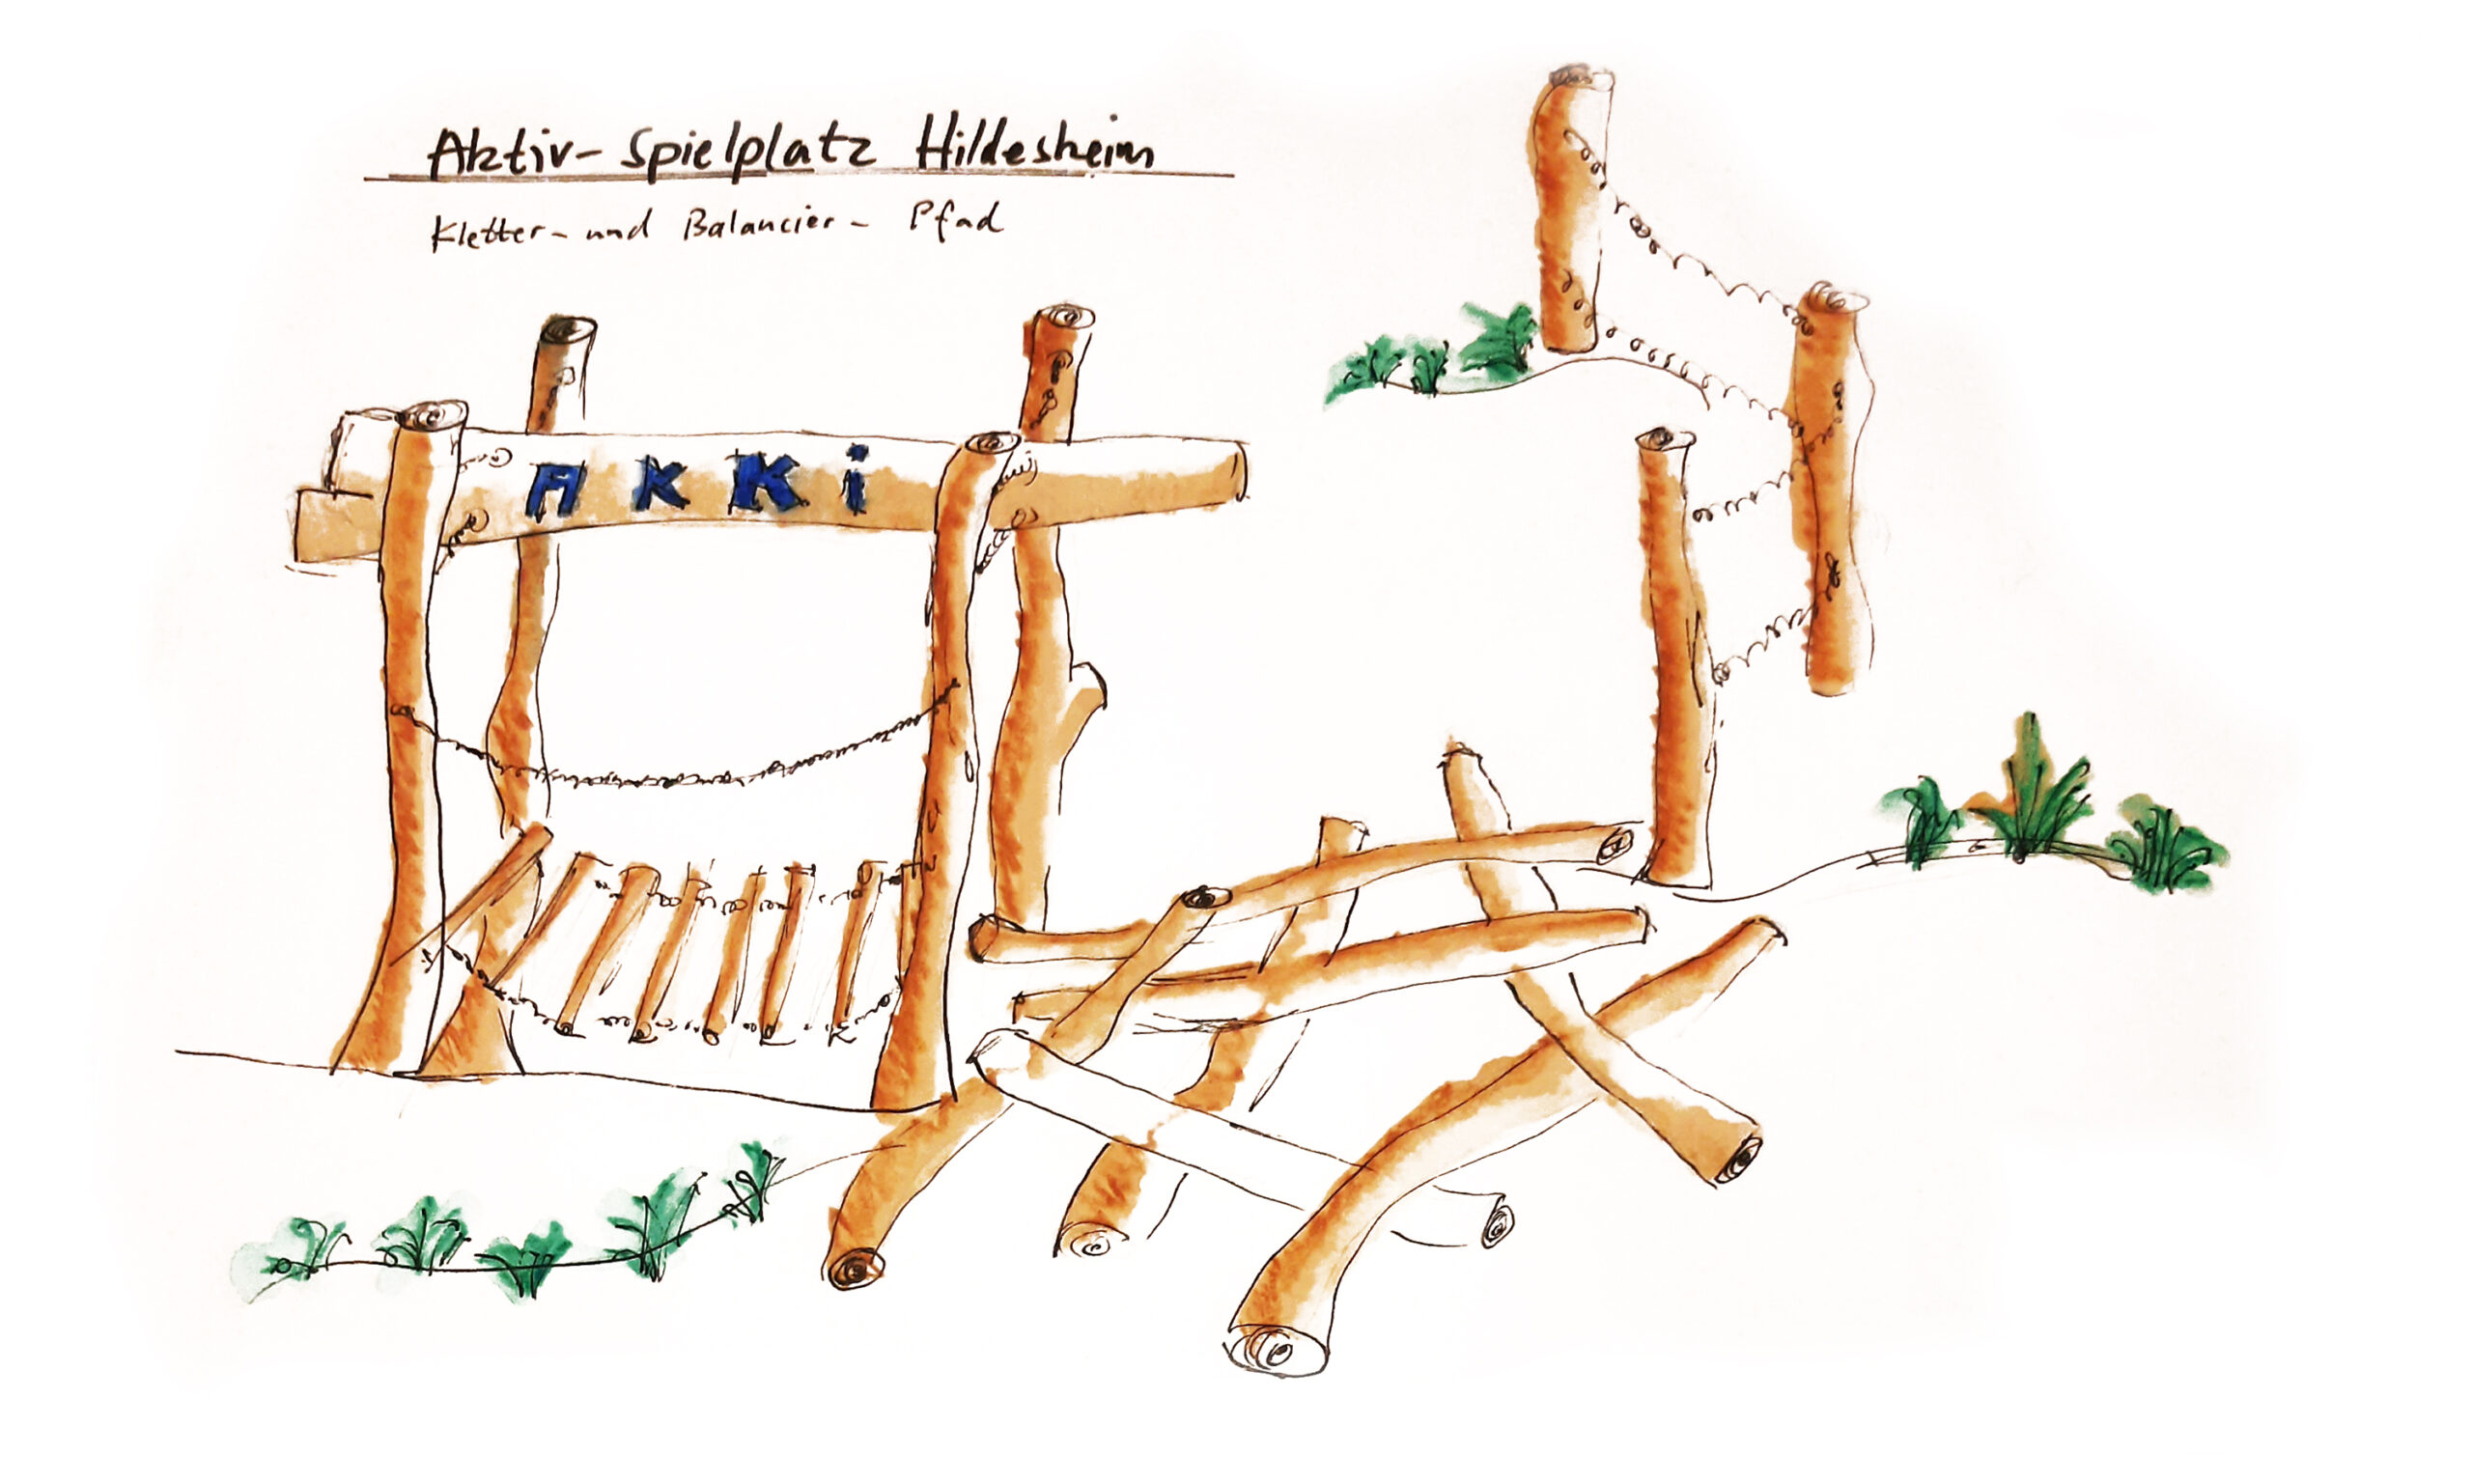 Aktiv-Spielplatz Hildesheim
Kletter- und Balancier-Pfad
AKKi